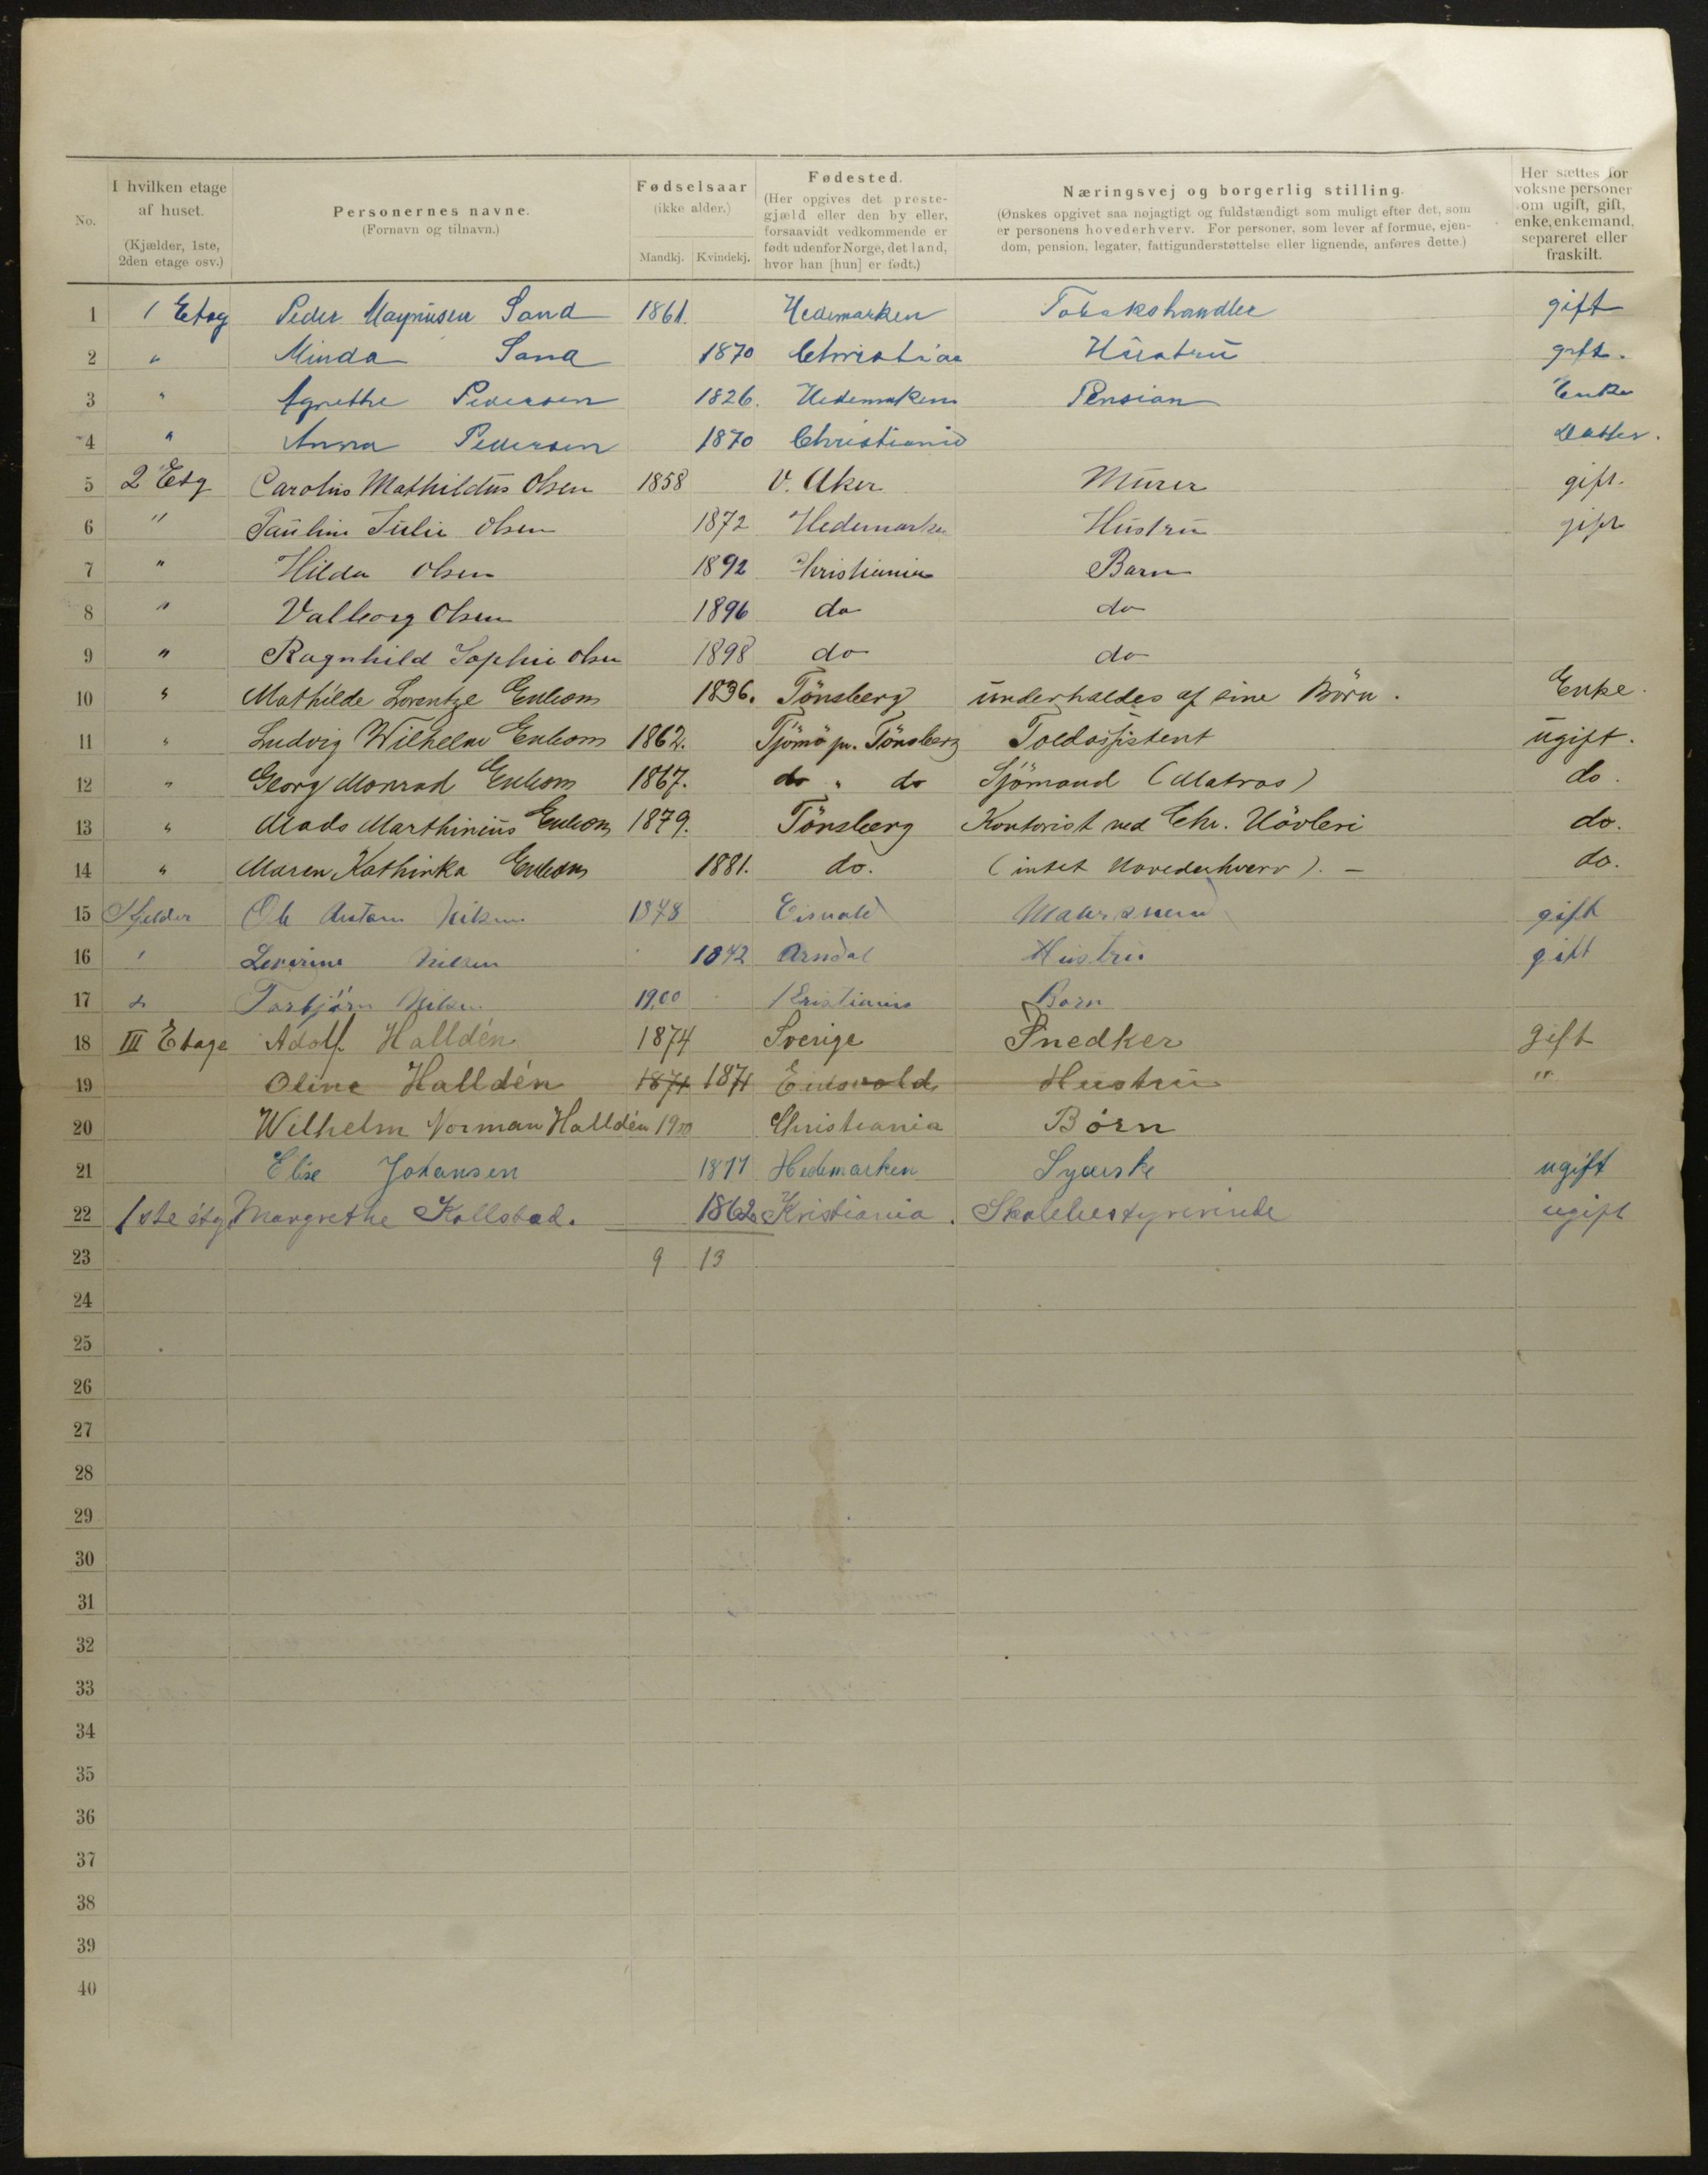 No.
I hvilken etage
af huset.
(Kjælder, 1ste,
2den etage osv.)
Personernes navne.
(Fornavn og tilnavn.)
Fødselsaar
(ikke alder.)
Mandkj. Kvindekj.
Fødested.
(Her opgives det preste-
gjæld eller den by eller,
forsaavidt vedkommende er
født udenfor Norge, det land,
hvor han [hun] er født.)
Næringsvej og borgerlig stilling.
(Ønskes opgivet saa nøjagtigt og fuldstændigt som muligt efter det, som
er personens hovederhverv. For personer, som lever af formue, ejen-
dom, pension, legater, fattigunderstøttelse eller lignende, anføres dette.)
Her sættes for
voksne personer
om ugift, gift,
enke, enkemand,
separeret eller
fraskilt.
1 1 Etag Peder Magnusen Sand 1861. Hedemarken Tobakshandler gift
2 " Minda Sand 1870 Christian Hustru gift.
3 " Agnethe Pedersen 1826. Hedemarken Pension Enke
4 " Anna Pedersen 1870 Christiania Datter.
5 2 Etg Carolus Mathildus Olsen 1858 V. Aker Murer gift.
6 " Pauline Julie Olsen 1872 Hedemarken Hustru gift
7 " Hilda Olsen 1892 Christiania Barn
8 " Valborg Olsen 1896 do do
9 " Ragnhild Sophie Olsen 1898 do do
10 " Mathilde Lorentze 1836. Tönsberg underholdes af sine Börn. Enke.
11 " Ludvig Wilhelm 1862. Tjömö pr. Tönsberg Toldassistent ugift.
12 " Georg Monrad 1867. do " do Sjömand (Matros) do.
13 " Mads Marthinius 1879. Tönsberg Kontorist ved Chr. Hövleri do.
14 " Maren Kathinka 1881. do. (intet Hovederhverv). — do.
15 Kjelder Ole Nilsen 1848 Eisvold gift
16 " Severine Nilsen 1842 Arndal Hustru gift
17 " Torbjörn Nilsen 1900 Kristiania Barn
18 III Etage Adolf Halldén 1874 Sverige Snedker gift
19 Oline Halldén 1871 1871 Eidsvold Hustru "
20 Wilhelm Norman Halldén 1900 Christiania Börn
21 Elise Johansen 1877 Hedemarken Syerske ugift
22 1ste étg Margrethe Kollstad. 1862 Kristiania. Skolebestyrerinde ugift
23 9 13
24
25
26
27
28
29
30
31
32
33
34
35
36
37
38
39
40